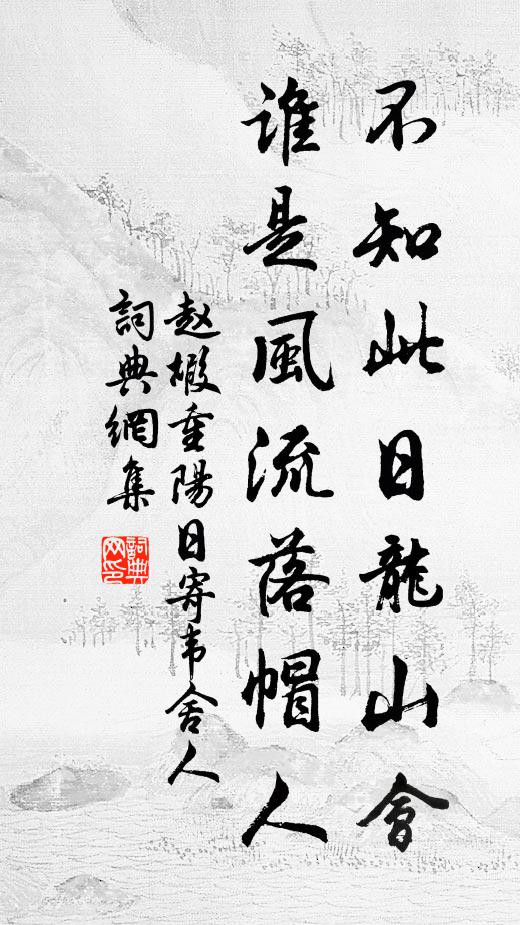 不知此日龍山會
誰是風流落帽人
赵嘏重陽日寄韦舍人
詞典網集
詞典网印